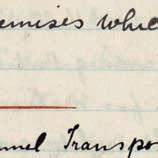 emises whic
nnel Transpo